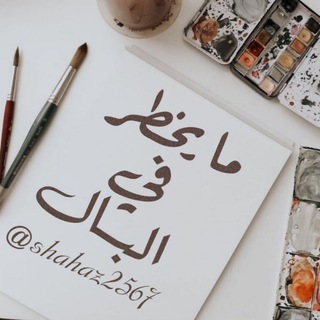 ما يخطر
في
البال
@shahaz2567